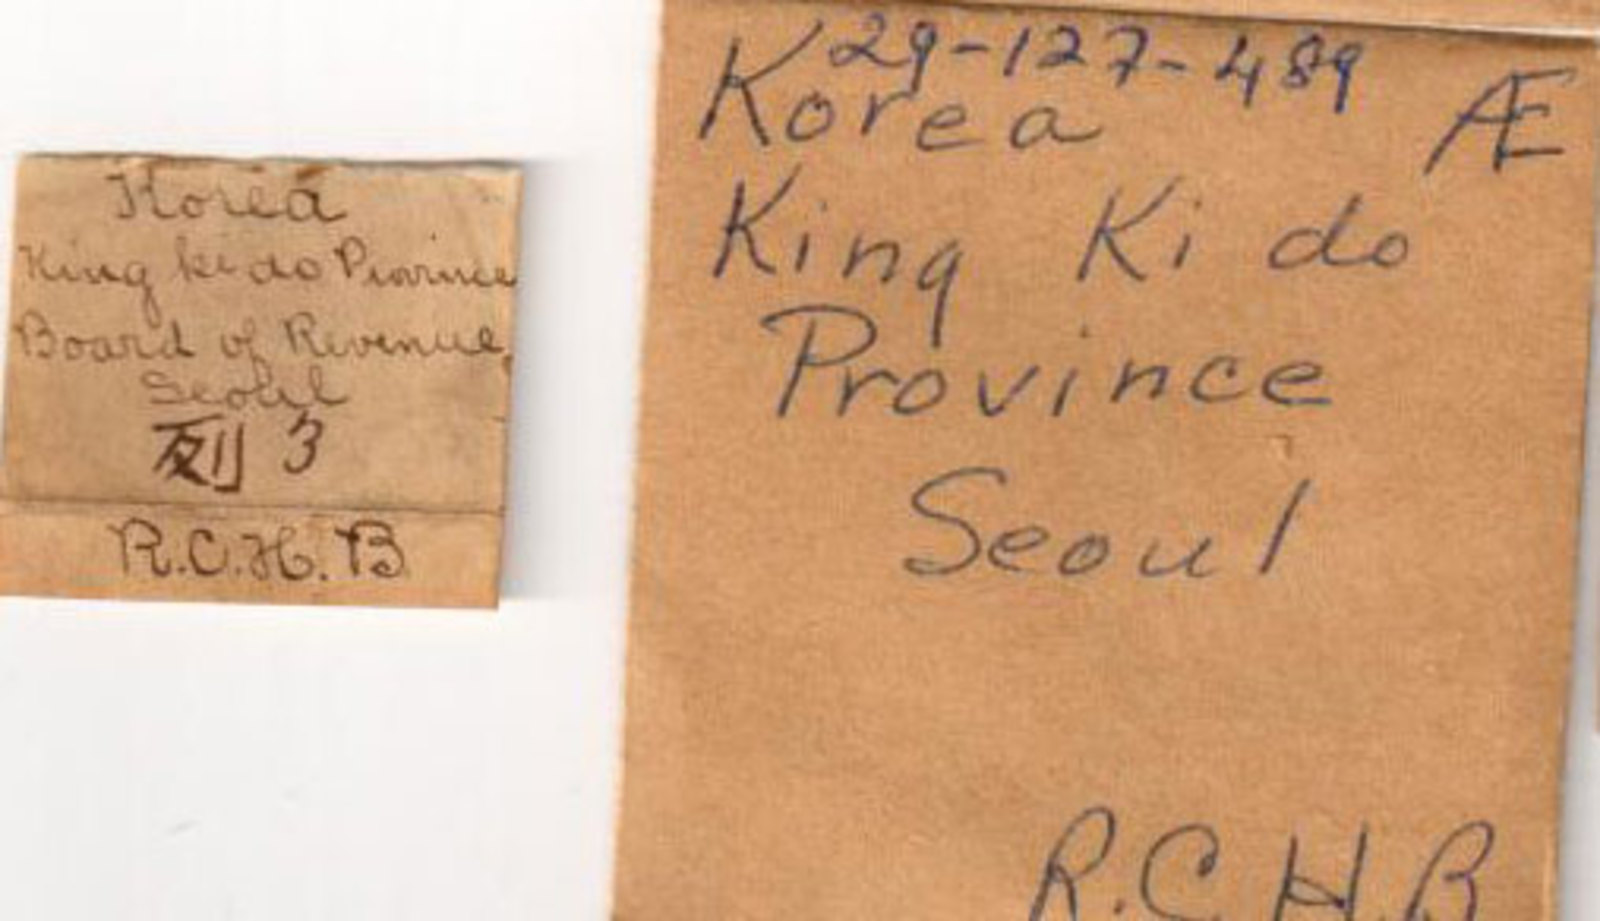 Korea
King ki do Province
Board of Revenue,
Seoul
列 3
R.C.H.B
29-127-489
Korea Æ
King Ki do
Province
Seoul
R.C H B